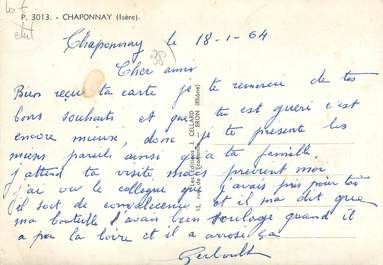 lot
P. 3013. - CHAPONNAY (Isère).
Chaponnay le 18-1-64
38
Cher ami
Bien reçu ta carte je te remercie de tes
bons souhaits et que tu est gueri c'est
encore mieux, donc je te presente les
miens pareils ainsi q'a ta famille.
j'attend ta visite mais prévient moi
j'ai vu le collegue que j'avais pris pour toi
il sort de convalecence et il ma dit que
ma bouteille l'avais bien soulagé quand il
a pu la boire et il a arrosé ça
J. CELLARD
BRON (Rhône)